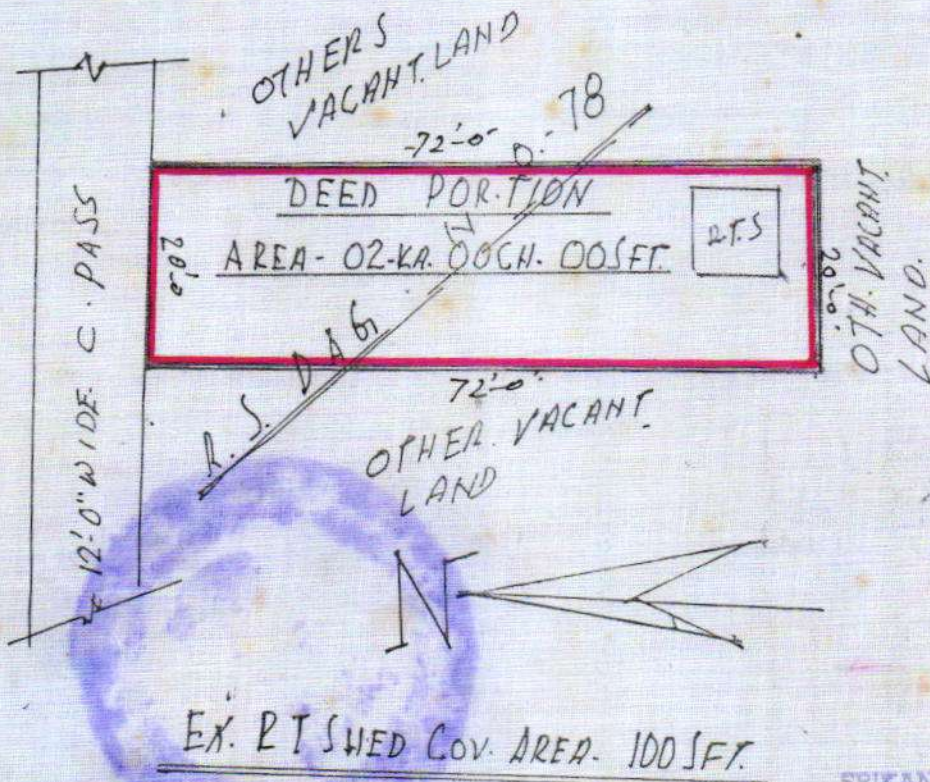 OTHERS
VACANT. LAND
72'-0"
R. S. DAG NO. 78
DEED PORTION
AREA - 02-KA. 00CH. 00SFT.
R.T.S
20'-0
20'-0"
OTH. VACANT.
LAND.
12'-0" WIDE C. PASS
72'-0"
OTHER. VACANT
LAND
N
EX. RT SHED COV. AREA. 100 SFT.